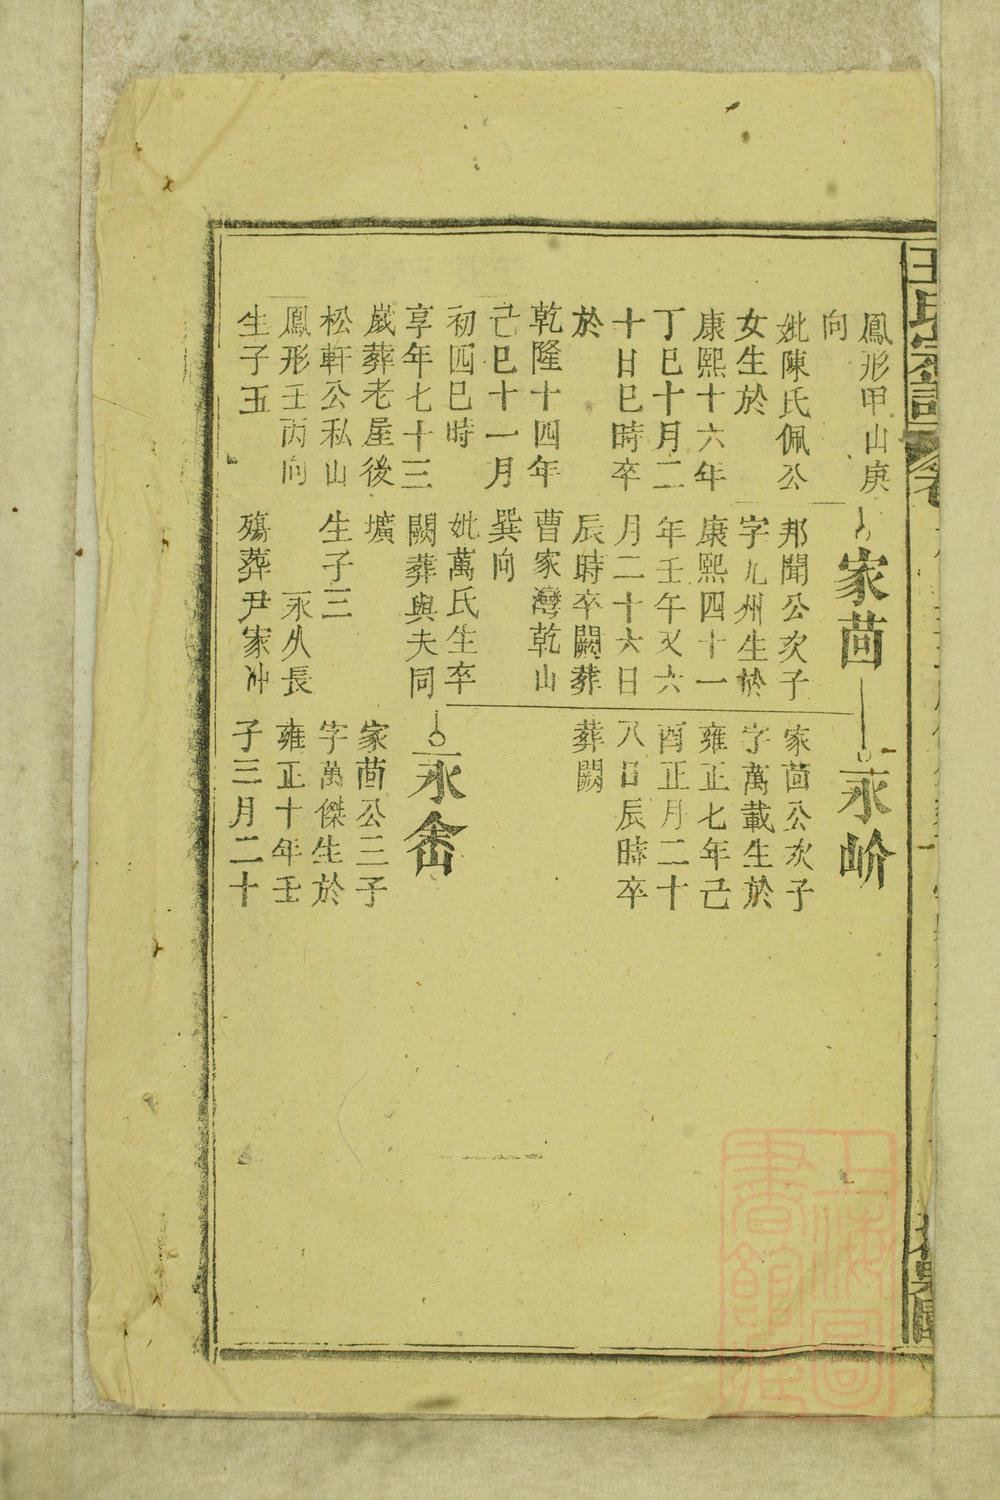 王氏宗譜
鳳形甲山庚
向
妣陳氏佩公
女生於
康熙十六年
丁巳十月二
十日巳時卒
於
乾隆十四年
己巳十一月
初四巳時
享年七十三
歲葬老屋後
松軒公私山
鳳形壬丙向
生子五
家茴
邦聞公次子
字九州生於
康熙四十一
年壬午又六
月二十六日
辰時卒闕葬
曹家灣乾山
巽向
妣萬氏生卒
闕葬與夫同
壙
生子三
永久長
殤葬尹家冲
永岕
家茴公次子
字萬載生於
雍正七年己
酉正月二十
八日辰時卒
葬闕
永
家茴公三子
字萬傑生於
雍正十年壬
子三月二十
上海圖
書館藏